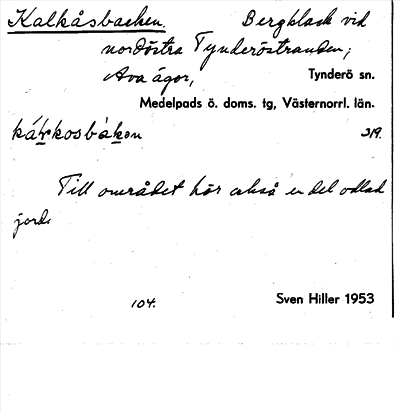 Kalkåsbacken. Bergblack vid
nordöstra Tynderöstranden;
Ava ägor, Tynderö sn.
Medelpads ö. doms. tg, Västernorrl. län.
319.
Till området hör också en del odlad
jord.
104. Sven Hiller 1953